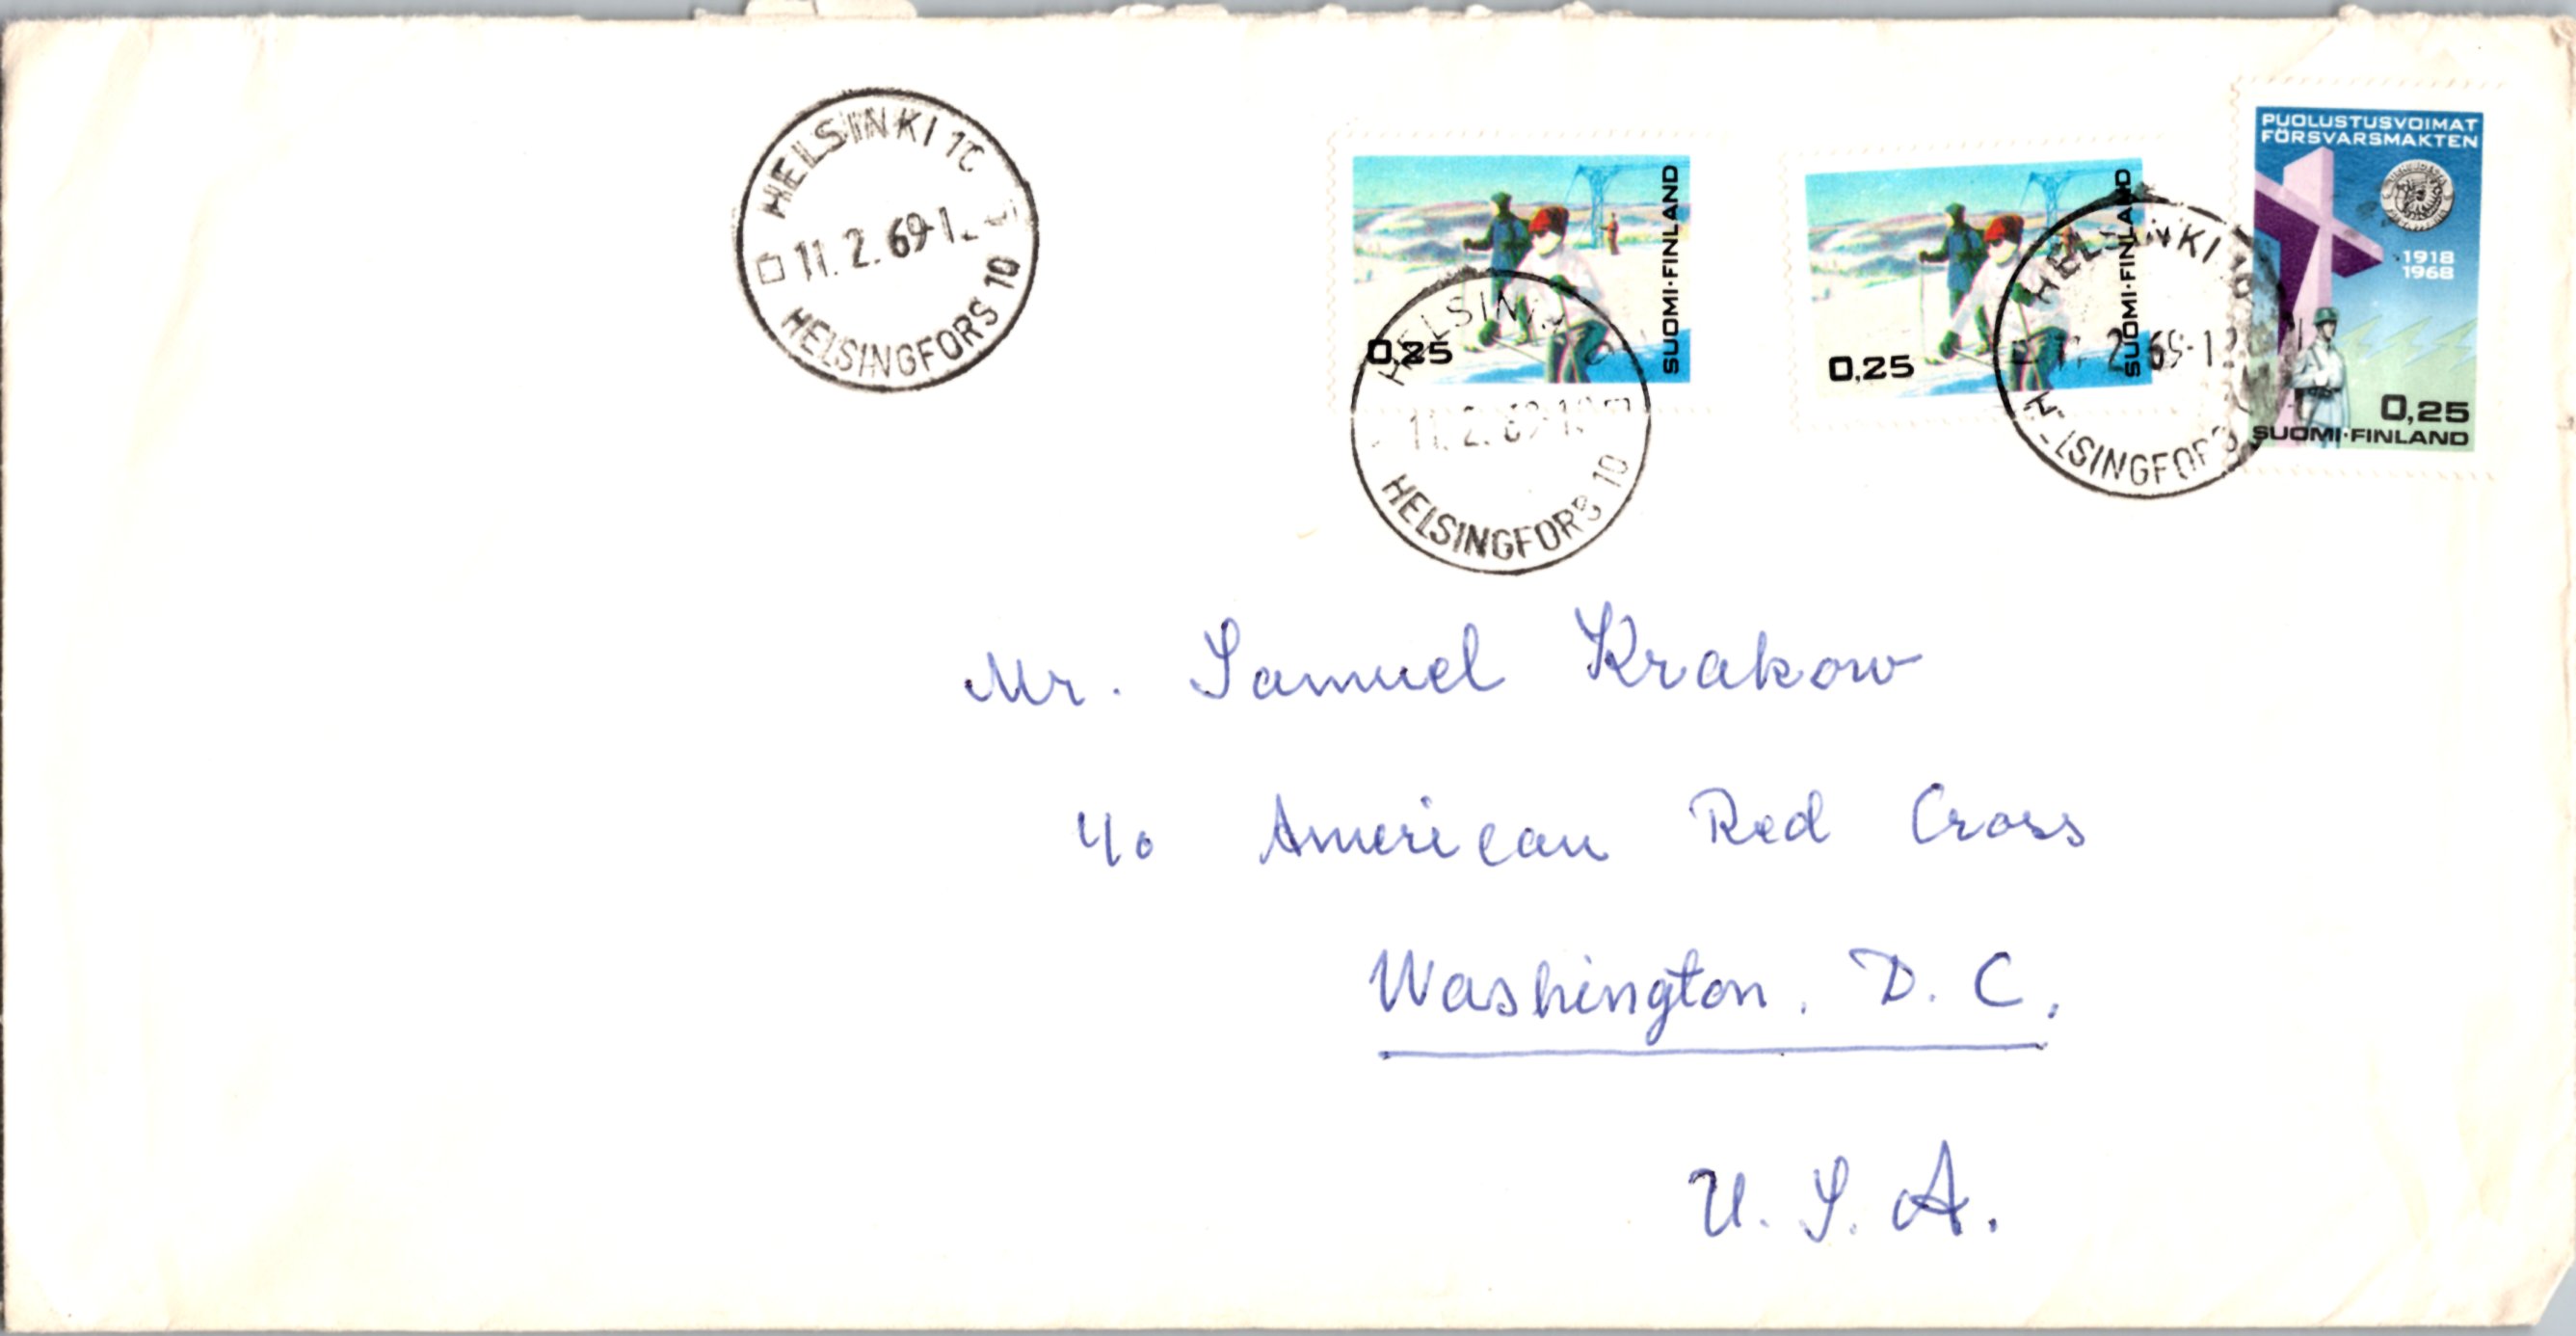 HELSINKI 10
11.2.69-1
HELSINGFORS 10
0,25
SUOMI·FINLAND
HELSINKI
11.2.69-1
HELSINGFORS 10
0,25
SUOMI·FINLAND
HELSINKI 10
11.2.69-12
HELSINGFORS
PUOLUSTUSVOIMAT
FÖRSVARSMAKTEN
1918
1968
0,25
SUOMI·FINLAND
Mr. Samuel Krakow
c/o American Red Cross
Washington, D. C.
U. S. A.